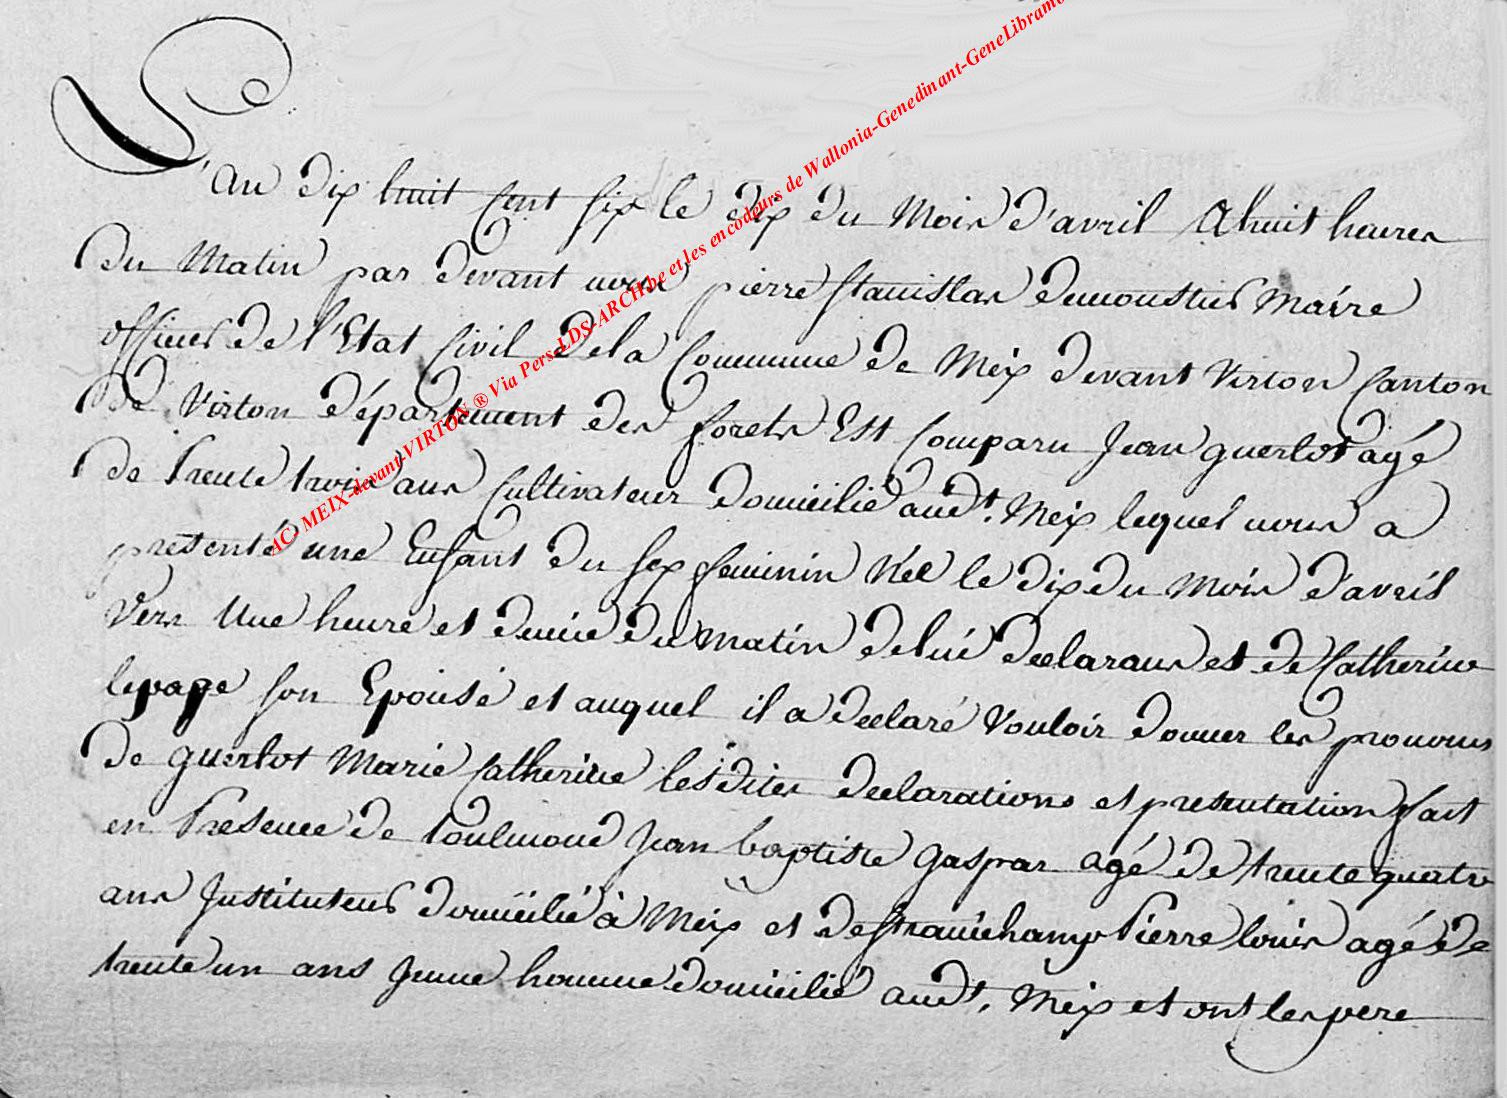 AC. MEIX-devant-VIRTON ® Via Pers-LDS-ARCH.be et les encodeurs de Wallonia-Genedinant-GeneLibramo
L'an dix huit cent six le dix du Mois d'avril A huit heures
du Matin par devant nous pierre stanislas demoustier Maire
officier de l'Etat Civil de la Commune de Meix devant Virton Canton
de Virton département des forets Est Comparu Jean guerlot agé
de trente trois ans Cultivateur domicilié audt. Meix lequel nous a
presenté une Enfant du sex feminin Née le dix du Mois d'avril
Vers Une heure et demie du matin de lui declarans et de Catherine
lepage son Epouse et auquel il a declaré Vouloir donner les pronoms
de guerlot Marie Catherine lesdites declarations et presentation fait
en Presence de toulmond Jean baptiste gaspar agé de trente quatre
ans Instituteur domicilié à Meix et de franchamp Pierre louis agé de
trente un ans Jeune homme domicilié audt. Meix et ont les pere